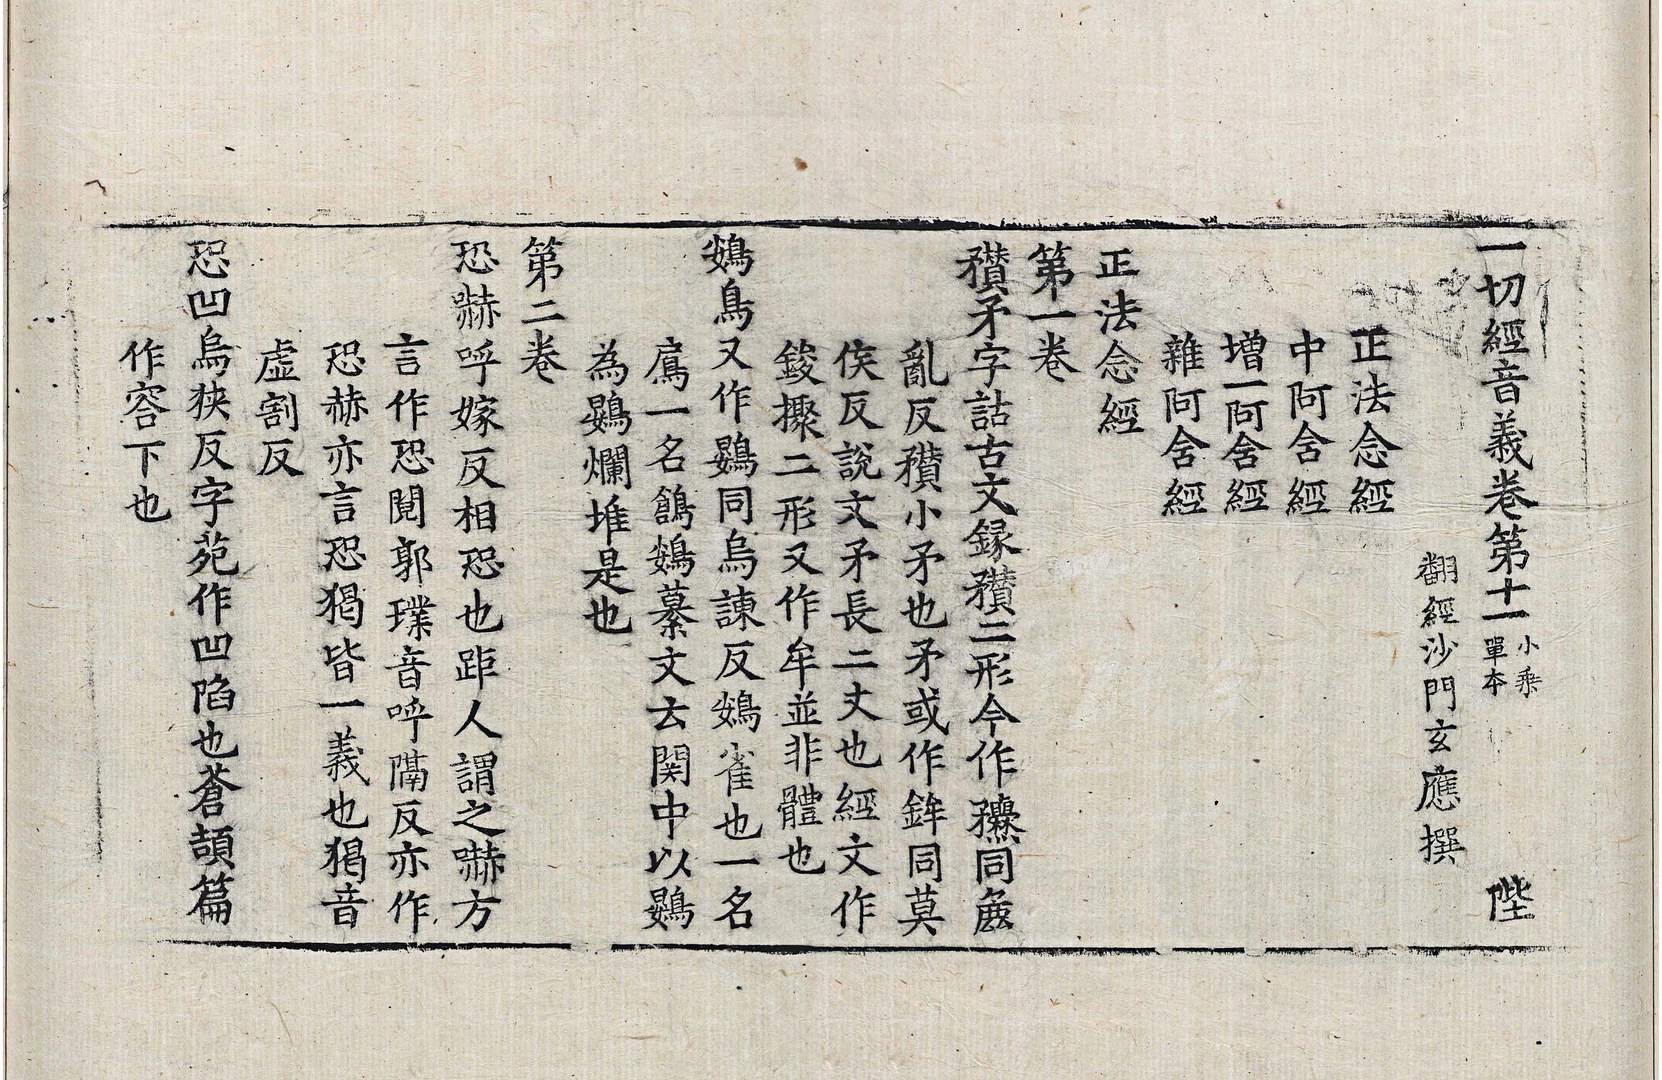 一切經音義卷第十一 小乘單本 陛
翻經沙門玄應撰
正法念經
中阿含經
增一阿含經
雜阿含經
正法念經
第一卷
矟矛字詁古文錄矟二形今作𥎞同麁
亂反矟小矛也矛或作鉾同莫
侯反說文矛長二丈也經文作
鋑攥二形又作牟並非體也
鵄鳥又作鷃同烏諫反鵄雀也一名
鳸一名鶬鵄纂文云関中以鷃
為鷃爛堆是也
第二卷
恐嚇呼嫁反相恐也距人謂之嚇方
言作恐鬩郭璞音呼隔反亦作
恐赫亦言恐猲皆一義也猲音
虛割反
恐凹烏狹反字苑作凹陷也蒼頡篇
作容下也